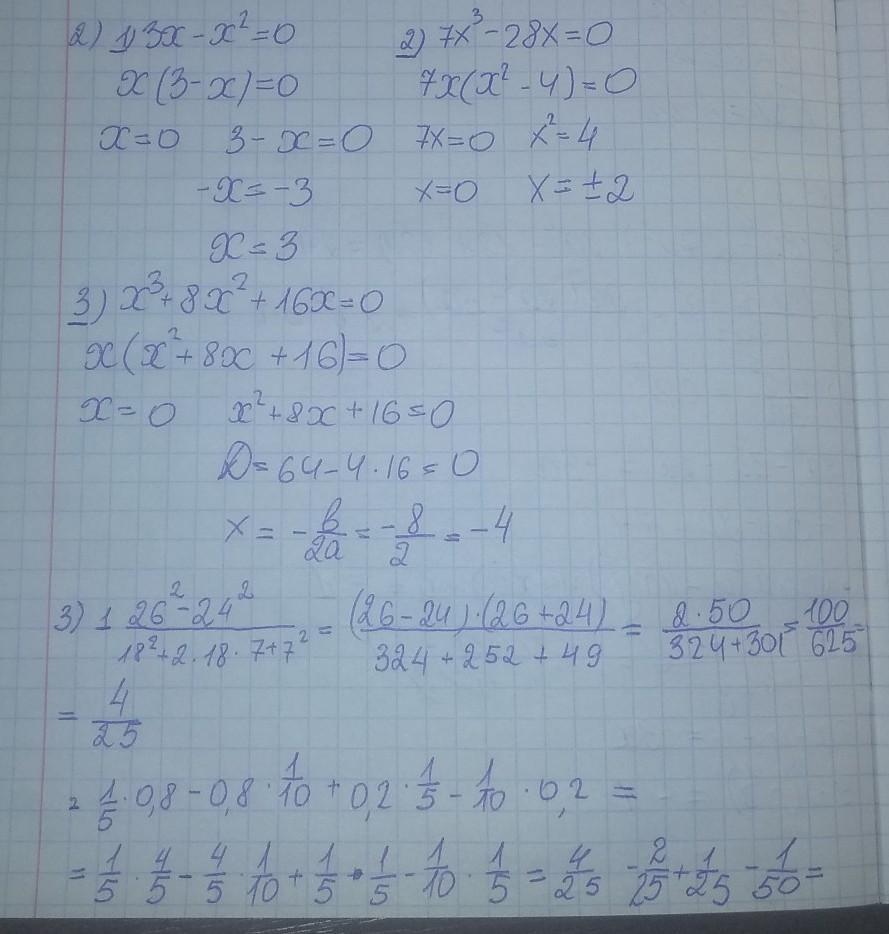 2) 1) 3x - x² = 0
x(3 - x) = 0
x = 0 3 - x = 0
-x = -3
x = 3
2) 7x³ - 28x = 0
7x(x² - 4) = 0
7x = 0 x² = 4
x = 0 x = ±2
3) x³ + 8x² + 16x = 0
x(x² + 8x + 16) = 0
x = 0 x² + 8x + 16 = 0
D = 64 - 4 · 16 = 0
x = -b/2a = -8/2 = -4
3) 1 (26² - 24²)/(18² + 2 · 18 · 7 + 7²) = ((26 - 24) · (26 + 24))/(324 + 252 + 49) = (2 · 50)/(324 + 301) = 100/625 =
= 4/25
2 1/5 · 0,8 - 0,8 · 1/10 + 0,2 · 1/5 - 1/10 · 0,2 =
= 1/5 · 4/5 - 4/5 · 1/10 + 1/5 · 1/5 - 1/10 · 1/5 = 4/25 - 2/25 + 1/25 - 1/50 =